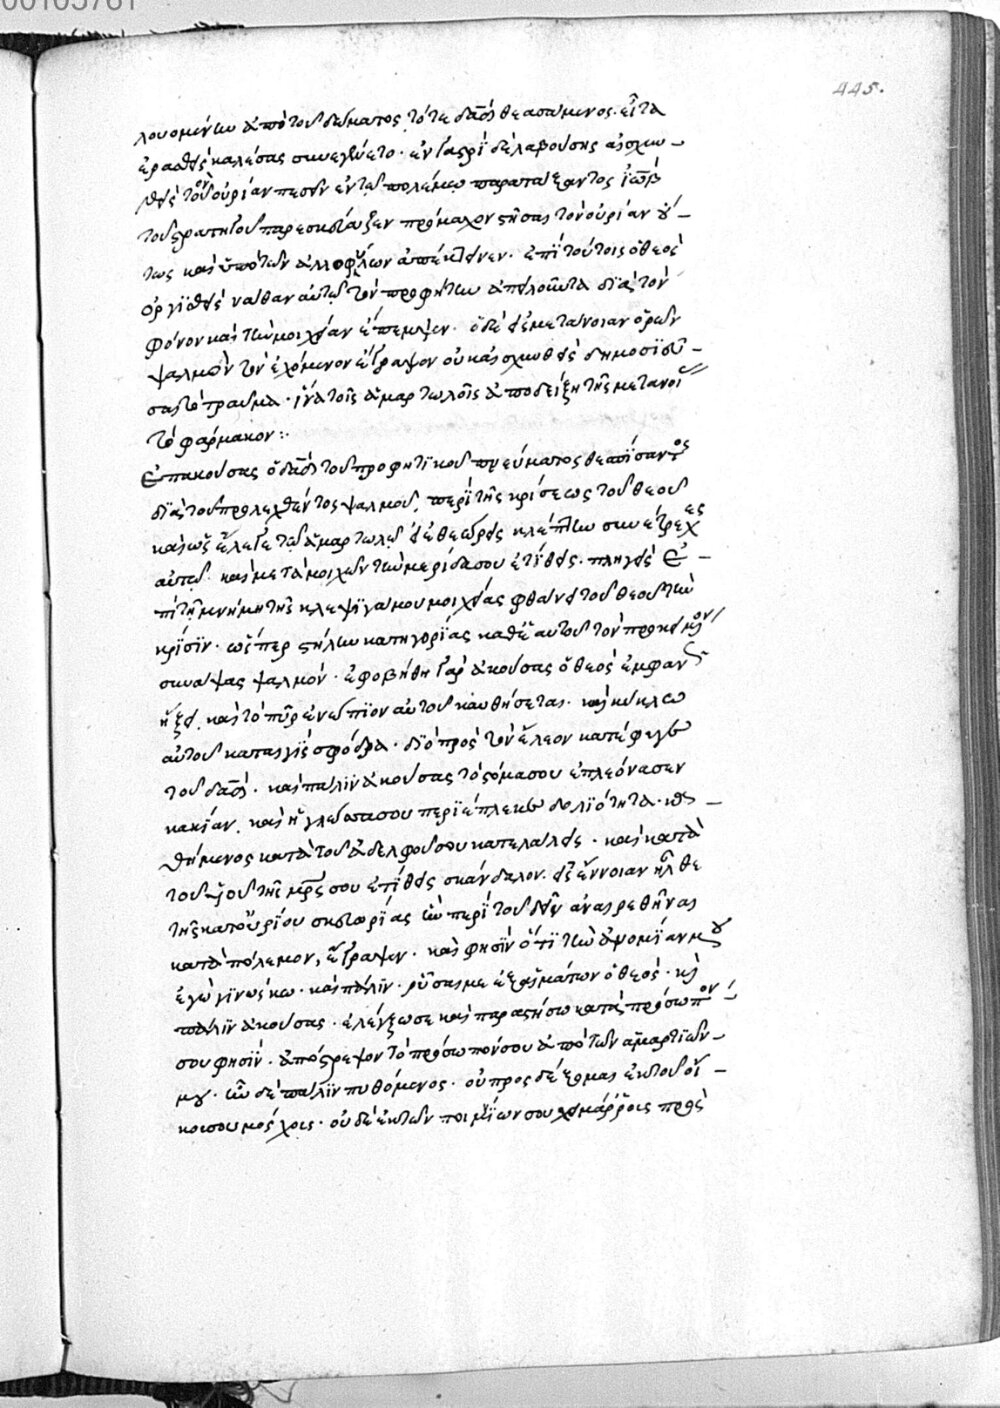 00105761
445.
λουομένην ἀπὸ τοῦ δώματος τότε δαδ θεασάμενος. εἶτα
ἐρασθεὶς καλέσας συνεγένετο. ἐν γαστρὶ δὲ λαβούσης αἰσχυν
θεὶς τὸν οὐρίαν πεσεῖν ἐν τῷ πολέμῳ παρατάξαντος ἰωὰβ
τοῦ στρατηγοῦ παρεσκεύαξεν πρόμαχον στῆσας τὸν οὐρίαν οὕ
τως καὶ ὑπὸ τῶν ἀλλοφύλων ἀπέκτεινεν. ἐπὶ τούτοις ὁ θεὸς
ὀργισθεὶς νάθαν αὐτῷ τὸν προφήτην ἀπειλοῦντα διὰ τὸν
φόνον καὶ τὴν μοιχείαν ἔπεμψεν. ὁ δὲ εἰς μετάνοιαν ὁρῶν
ψαλμὸν τὸν ἐχόμενον ἔγραψεν οὐκ αἰσχυνθεὶς δημοσιεῦ
σαι τὸ τραῦμα. ἵνα τοῖς ἁμαρτωλοῖς ἀποδείξῃ τῆς μετανοί
τὸ φάρμακον:
Ἐπακούσας ὁ δαδ τοῦ προφητικοῦ πνεύματος θεσπίσαντος
διὰ τοῦ προλεχθέντος ψαλμοῦ, περὶ τῆς κρίσεως τοῦ θεοῦ
καὶ ὡς ἔλεγε τῷ ἁμαρτωλῷ εἰ ἐθεώρεις κλέπτην συνέτρεχες
αὐτῷ. καὶ μετὰ μοιχῶν τὴν μερίδα σου ἐτίθεις. πληγεὶς ἐ
πὶ τῇ μνήμῃ τῆς κλεψιγάμου μοιχείας φθάνει τοῦ θεοῦ τὴν
κρίσιν. ὥσπερ στήλην κατηγορίας καθ' ἑαυτοῦ τὸν προκείμενον
συνάψας ψαλμόν. ἐφοβήθη γὰρ ἀκούσας ὁ θεὸς ἐμφανῶς
ἥξει. καὶ τὸ πῦρ ἐνώπιον αὐτοῦ καυθήσεται. καὶ κύκλῳ
αὐτοῦ καταιγὶς σφόδρα. διὸ πρὸς τὸν ἔλεον κατέφευγε
τοῦ δαδ. καὶ πάλιν ἀκούσας τὸ στόμα σου ἐπλεόνασεν
κακίαν, καὶ ἡ γλῶσσα σου περιέπλεκε δολιότητα. κα
θήμενος κατὰ τοῦ ἀδελφοῦ σου κατελάλεις. καὶ κατὰ
τοῦ υἱοῦ τῆς μρς σου ἐτίθεις σκάνδαλον. εἰς ἔννοιαν ἦλθε
τῆς κατ' οὐρίου σκαιωρίας ὡς περὶ τοῦ δεῖν ἀναιρεθῆναι
κατὰ πόλεμον, ἔγραψεν. καὶ φησὶν ὅτι τὴν ἀνομίαν μου
ἐγὼ γινώσκω. καὶ πάλιν. ῥῦσαι με ἐξ αἱμάτων ὁ θεός. καὶ
πάλιν ἀκούσας. ἐλέγξω σε καὶ παραστήσω κατὰ πρόσωπον
σου φησίν. ἀπόστρεψον τὸ πρόσωπόν σου ἀπὸ τῶν ἁμαρτιῶν
μου. ὡς δὲ πάλιν πυθόμενος. οὐ προσδέξομαι ἐκ τοῦ οἴ
κου σου μόσχους. οὐδὲ ἐκ τῶν ποιμνίων σου χιμάρρους πρὸς